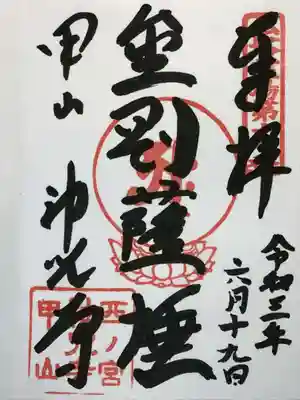 奉拝
令和三年
六月十九日
金剛薩埵
甲山 神呪寺
西ノ宮
甲山